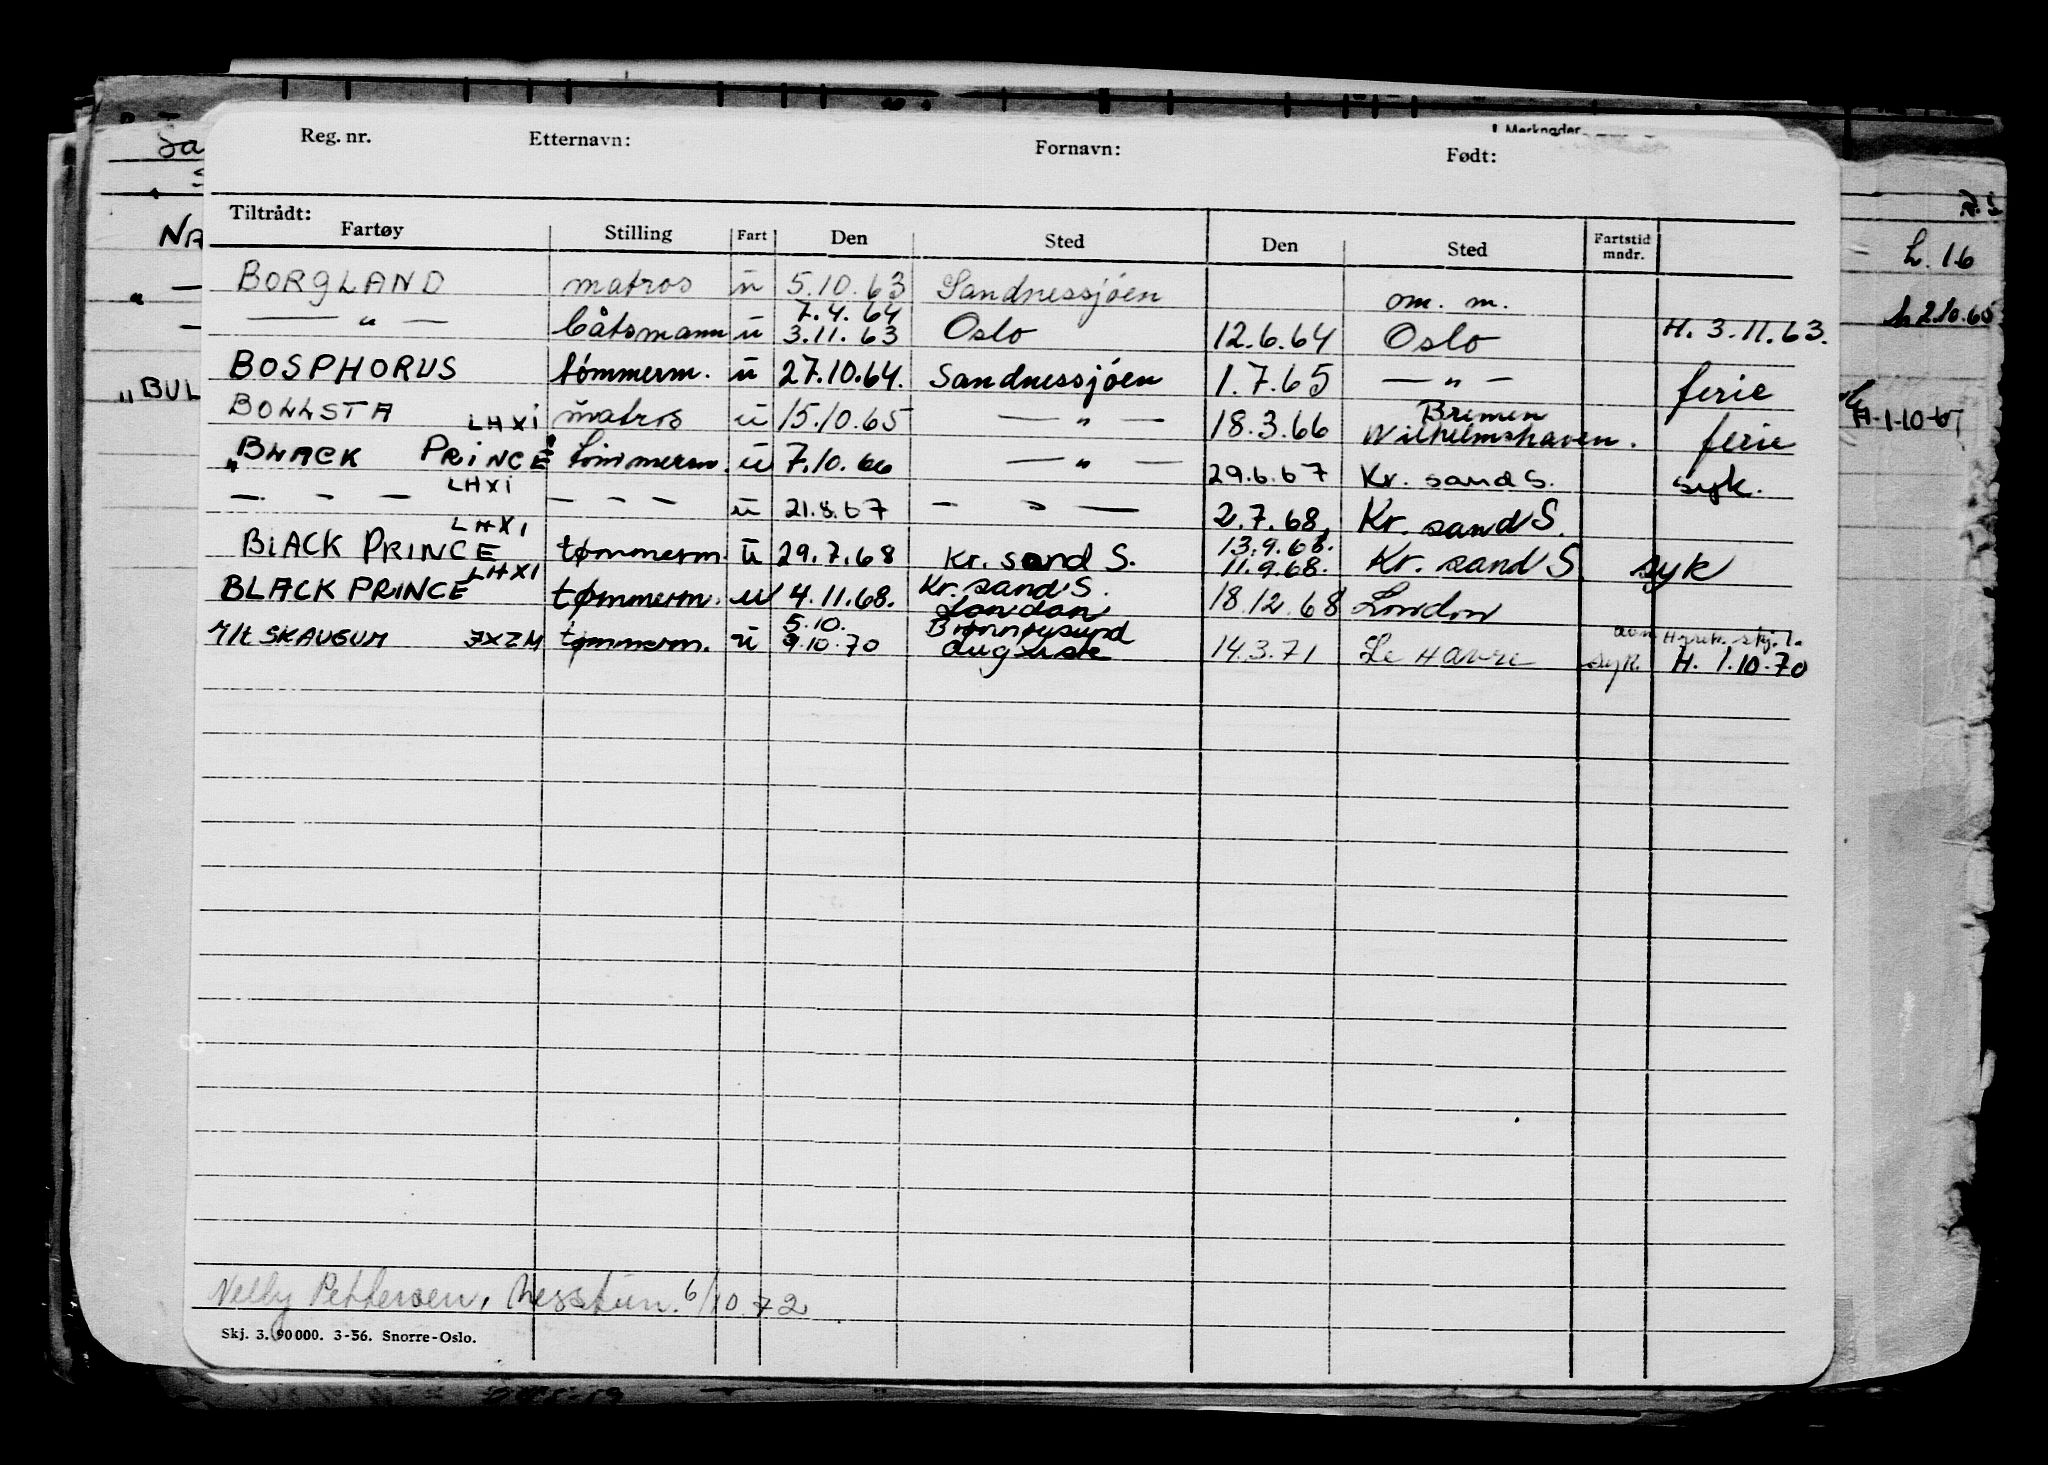 Reg. nr. Etternavn: Fornavn: Født:
Merknader
Tiltrådt:
Fartøy Stilling Fart Den Sted Den Sted Fartstid mndr.
BORGLAND matros u 5.10.63 Sandnessjøen om. m.
— " — båtsmann u 7.4.64 3.11.63 Oslo 12.6.64 Oslo H. 3.11.63.
BOSPHORUS tømmerm. u 27.10.64. Sandnessjøen 1.7.65 — " — ferie
BOLLSTA matros u 15.10.65 — " — 18.3.66 Bremen Wilhelmshaven. ferie
"BLACK PRINCE" LHXI tømmerm. u 7.10.66 — " — 29.6.67 Kr. sand S. syk.
— - — LHXI — - - — u 21.8.67 — " — 2.7.68, Kr. sand S.
BLACK PRINCE LHXI tømmerm. u 29.7.68 Kr. sand S. 13.9.68. 11.9.68. Kr. sand S. syk
BLACK PRINCE LHXI tømmerm. u 4.11.68. Kr. sand S. London 18.12.68 London
M/t SKAUGUM JXZM tømmerm. u 5.10. 9.10.70 Brønnøysund 14.3.71 Le Havre syk. skj. H. 1.10.70
Nelly Pettersen, Nesstun. 6/10.72
Skj. 3. 90000. 3-56. Snorre-Oslo.
Sa
NA
"BUL
L. 16
h 2.10.65